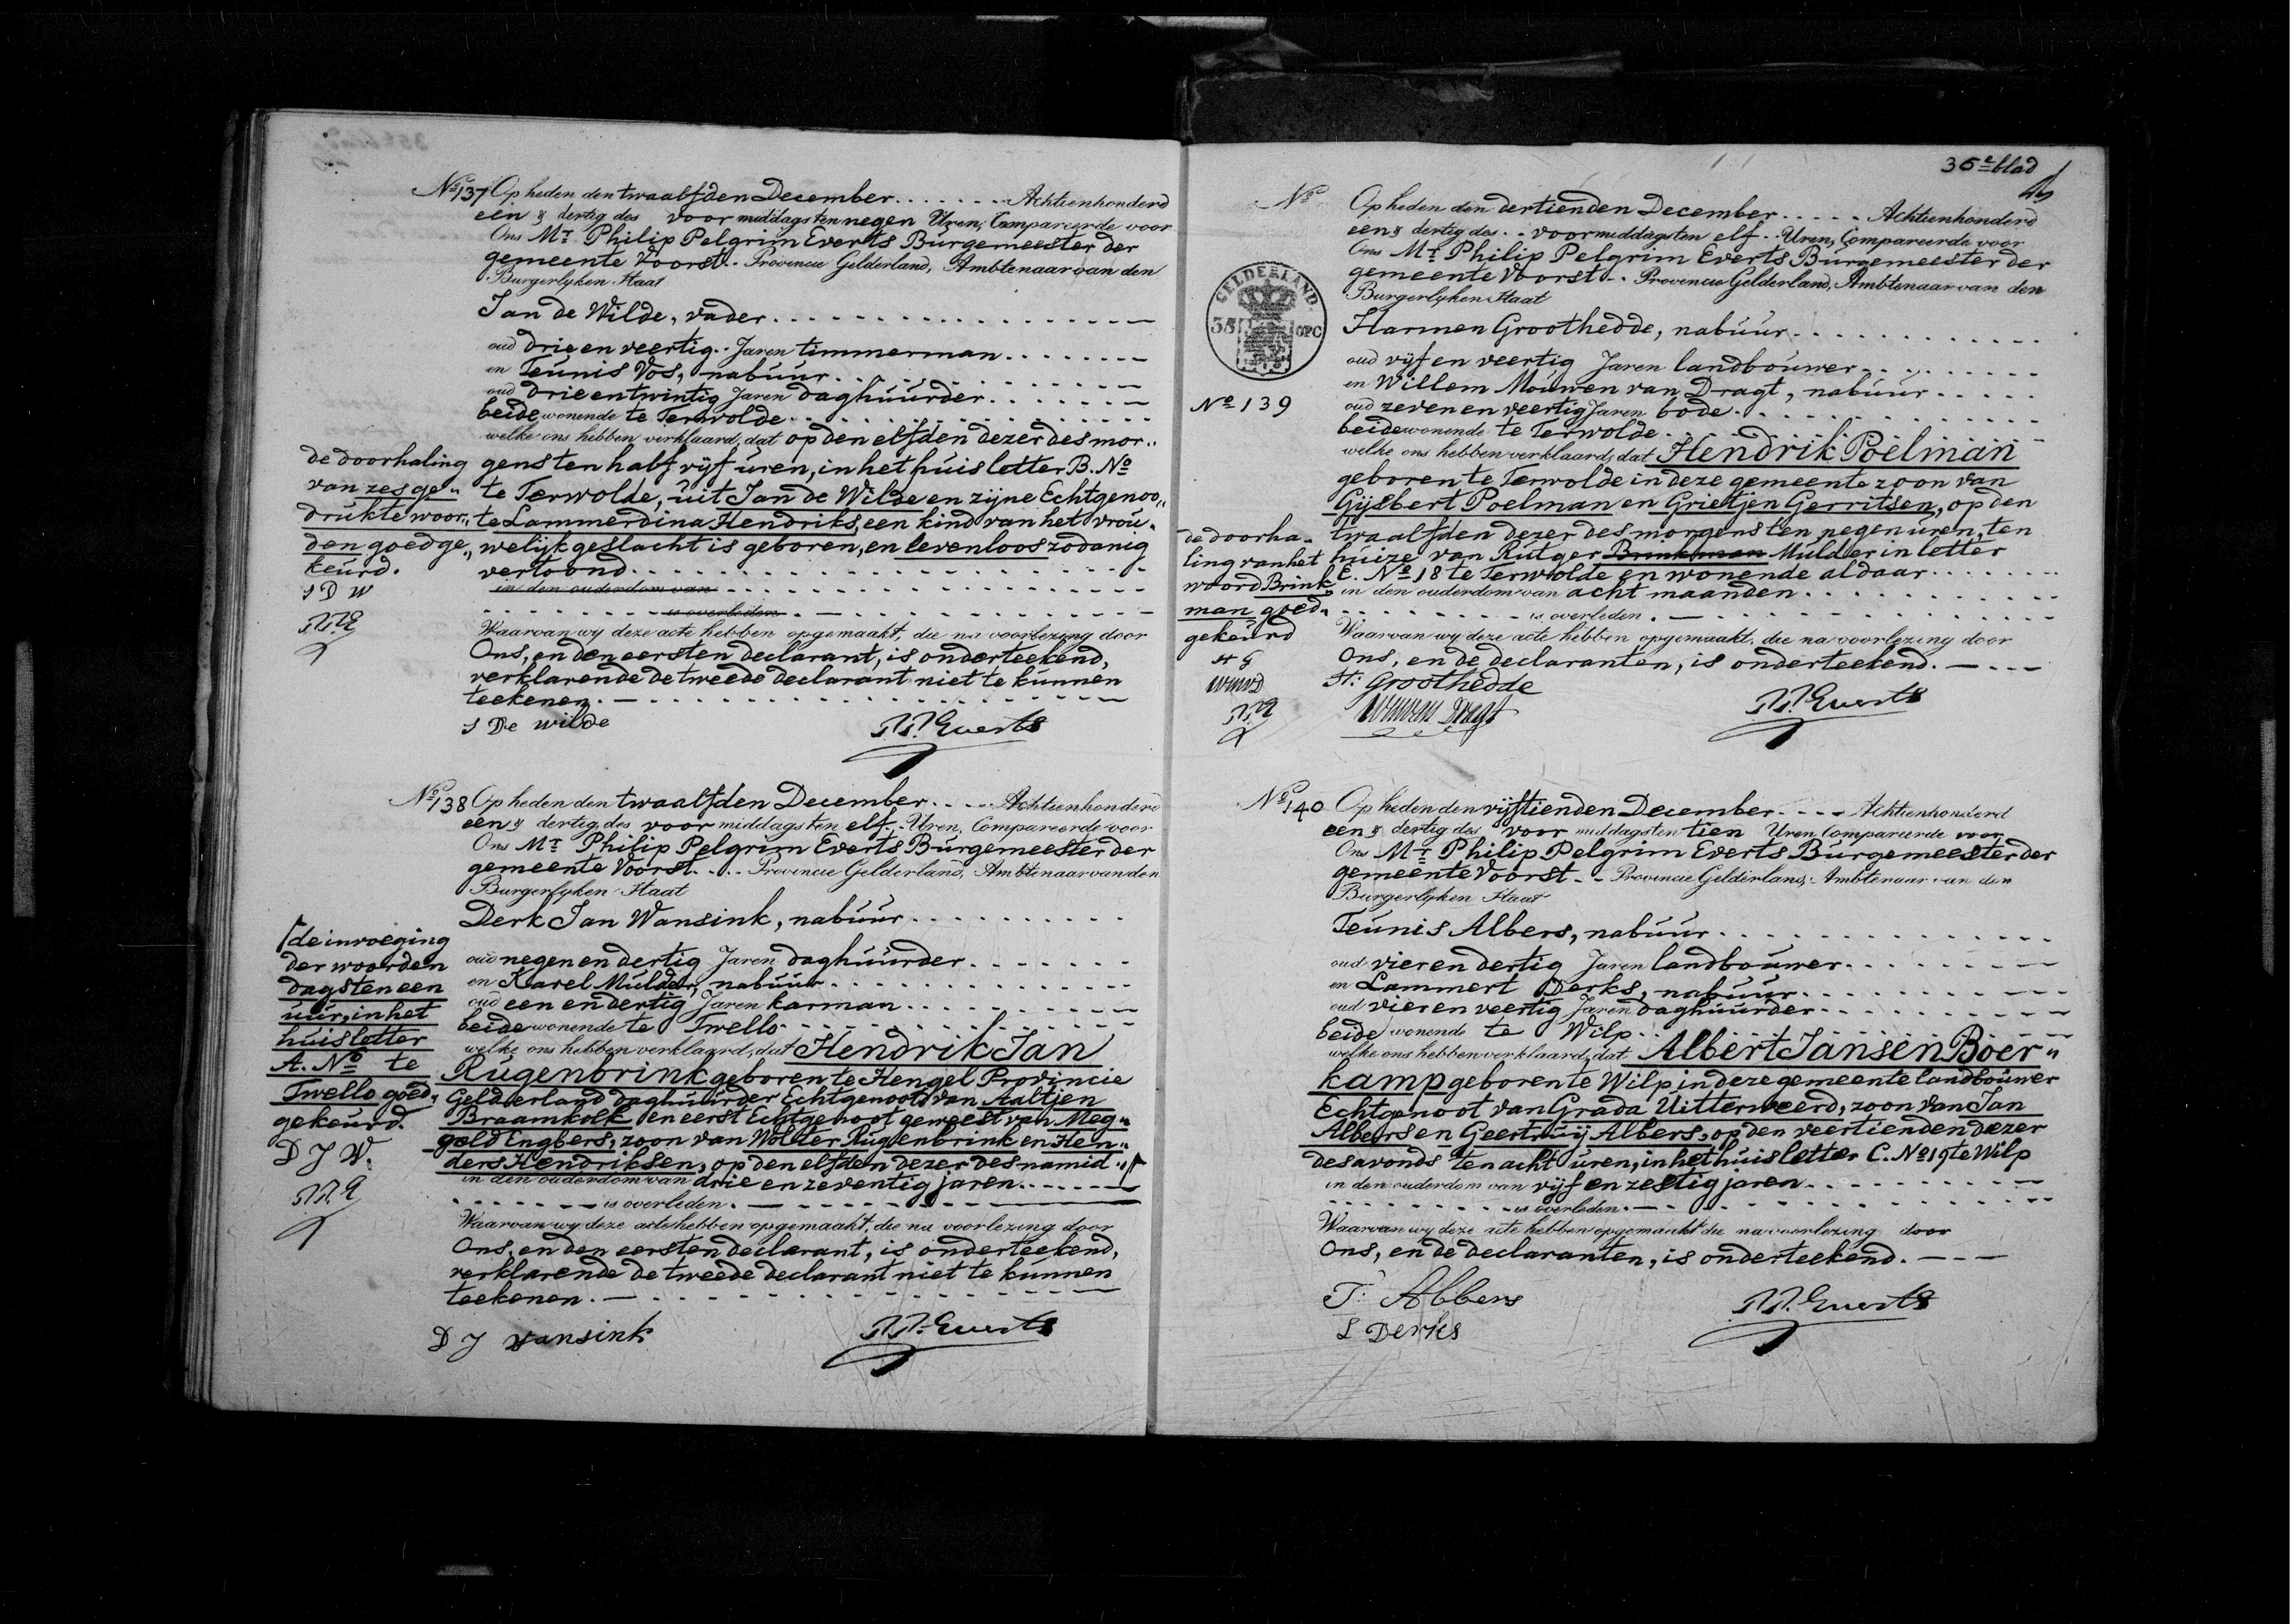 No 137 Op heden den twaalfden December Achtienhonderd
een & dertig des voor middags ten negen Uren, Compareerde voor
Ons Mr Philip Pelgrim Everts Burgemeester der
gemeente Voorst Provincie Gelderland, Ambtenaar van den
Burgerlyken Staat
Jan de Wilde, vader
oud drie en veertig Jaren timmerman
en Teunis Vos, nabuur
oud drie en twintig Jaren daghuurder
beide wonende te Terwolde
welke ons hebben verklaard, dat op den elfden dezer des mor„
gens ten half vyf uren, in het huis letter B. No
te Terwolde, uit Jan de Wilde en zijne Echtgenoo„
te Lammerdina Hendriks, een kind van het vrou„
welijk geslacht is geboren, en levenloos zodanig
vertoond
in den ouderdom van
is overleden
Waarvan wy deze acte hebben opgemaakt, die na voorlezing door
Ons, en den eersten declarant, is onderteekend,
verklarende de tweede declarant niet te kunnen
teekenen.
J De Wilde P.P. Everts
de doorhaling
van zes ge„
drukte woor„
den goedge„
keurd.
J D W
P.P.E
No 138 Op heden den twaalfden December Achtienhonderd
een & dertig des voor middags ten elf Uren, Compareerde voor
Ons Mr Philip Pelgrim Everts Burgemeester der
gemeente Voorst Provincie Gelderland, Ambtenaar van den
Burgerlyken Staat
Derk Jan Wansink, nabuur
oud negen en dertig Jaren daghuurder
en Karel Mulder, nabuur
oud een en dertig Jaren karman
beide wonende te Twello
welke ons hebben verklaard, dat Hendrik Jan
Rugenbrink geboren te Hengel Provincie
Gelderland daghuurder Echtgenoot van Aaltjen
Braamkolk en eerst Echtgenoot geweest van Meg„
geld Engbers, zoon van Wolter Rugenbrink en Hen„
ders Hendriksen, op den elfden dezer des namid„
in den ouderdom van drie en zeventig jaren
is overleden.
Waarvan wy deze acte hebben opgemaakt, die na voorlezing door
Ons, en den eersten declarant, is onderteekend,
verklarende de tweede declarant niet te kunnen
teekenen.
D J Wansink P.P. Everts
de invoeging
der woorden
dags ten een
uur, in het
huis letter
A. No te
Twello goed„
gekeurd.
D J W.
P.P.E
36e blad
No Op heden den dertienden December Achtienhonderd
een & dertig des voormiddags ten elf Uren, Compareerde voor
Ons Mr Philip Pelgrim Everts Burgemeester der
gemeente Voorst Provincie Gelderland, Ambtenaar van den
Burgerlyken Staat
GELDERLAND
Harmen Groothedde, nabuur
oud vyf en veertig Jaren landbouwer
en Willem Mouwen van Dragt, nabuur
No 139
oud zeven en veertig Jaren bode
beide wonende te Terwolde
welke ons hebben verklaard, dat Hendrik Poelman
geboren te Terwolde in deze gemeente zoon van
Gijsbert Poelman en Grietjen Gerritsen, op den
twaalfden dezer des morgens ten negen uren, ten
huize van Rutger Brinkman Mulder in letter
C. No 18 te Terwolde en wonende aldaar
in den ouderdom van acht maanden
is overleden.
Waarvan wy deze acte hebben opgemaakt, die na voorlezing door
Ons, en de declaranten, is onderteekend.
H: Groothedde P.P. Everts
de doorha„
ling van het
woord Brink„
man goed„
gekeurd
H G
WMVD
P.P.E
No 140 Op heden den vijftienden December Achtienhonderd
een & dertig des voor middags ten tien Uren Compareerde voor
Ons Mr Philip Pelgrim Everts Burgemeester der
gemeente Voorst Provincie Gelderland, Ambtenaar van den
Burgerlyken Staat
Teunis Albers, nabuur
oud vier en dertig Jaren landbouwer
en Lammert Derks, nabuur
oud vier en veertig Jaren daghuurder
beide wonende te Wilp
welke ons hebben verklaard, dat Albert Jansen Boer„
kamp geboren te Wilp in deze gemeente landbouwer
Echtgenoot van Grada Uitterweerd, zoon van Jan
Albers en Geertruij Albers, op den veertienden dezer
des avonds ten acht uren, in het huis letter C. No 19 te Wilp
in den ouderdom van vijf en zestig jaren
is overleden.
Waarvan wy deze acte hebben opgemaakt die na voorlezing door
Ons, en de declaranten, is onderteekend.
T: Albers P.P. Everts
L Derks